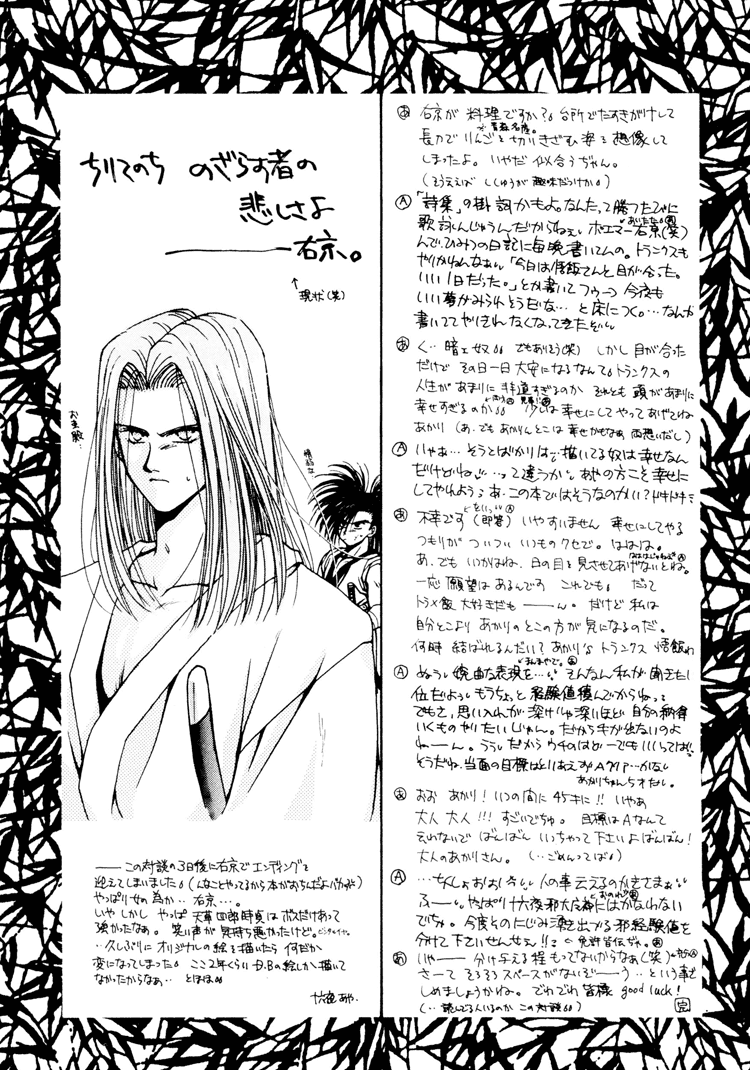 ちりてのち のざらす者の
悲しさよ
――右京。
↑
現状(笑)
お圭殿…
あ 右京が 料理ですか？ 台所でたすきがけして
青森名産。
長刀でりんごを切りきざむ姿を想像して
しまったよ。 いやだ 似合うぢゃん。
(そうえば ししゅうが 趣味だっけか)
A 「詩集」の掛詞かもよ。なんたって勝つたびに
歌詠んじゅうんだからねぇ。ポエマー右京(笑)
んで、ひみつの日記に毎晩書いてんの。トランクスも
やりかねんなぁ。「今日は悟飯さんと目が合った。
いい1日だった。」とか書いてフゥーっ 今夜も
いい夢がみられそうだな… と床につく。…なんか
書いててやりきれなくなってきたぞ
あ く…暗ェ奴 でもありそう(笑) しかし 目が合った
だけで その日一日大安になるなんて トランクスの
人生が あまりに 非道すぎるのか それとも 頭があまりに
幸せすぎるのか 少しは幸せにしてやってあげてよね
あかり (あ、でも あかりんとこは 幸せかもなぁ 両想いだし)
A いやぁ… そうとばかりは… 描いてる奴は幸せなん
だけどね …って違うか。あやの方こそ幸せに
してやれよう あ、この本ではそうなのかい？ドキドキ
あ 不幸です (即答) いやすいません 幸せにしてやる
つもりが ついつい いつものクセで。ははは。
あ、でも いつかはね、日の目を見させてあげないとね。
一応 願望は あるんです これでも だって
トラ×飯 大好きだも ――ん。 だけど 私は
自分とこより あかりのとこの方が 気になるのだ。
何時 結ばれるんだい？ あかり's トランクス 悟飯は
A ぬぅう 婉曲な表現を… そんなん私が聞きたい
位だよう もうちょっと経験値積んでからねっ
でもさ、思い入れが深けりゃ深いほど 自分の納得
いくものやりたいじゃん。だから手が出ないのよ
ね――ん。うう だから ウチのはどーでもいいってば
そうだね、当面の目標はとりあえず
あ おお あかり！ いつの間に 45キに!! いやぁ
大人 大人!!! すごいでちゅ。 目標はAなんて
云わないで ばんばん いっちゃって下さいよばんばん！
大人のあかりさん。 (…ごめんってば)
A 人の事云えるのかきさまぁ
ふ――。やはり十六夜邪大帝にはかなわない
でちゅ。今度そのにじみ湧き出づる邪経験値を
分けて下さいせんせぇ!! 免許皆伝だね。
あ いや―― 分け与える程 もってないからなぁ(笑)
さーて そろそろ スペースがないぞーう …という事で
しめましょうかね。 でわでわ 皆様 good luck！
(…読んでる人いるのか この対談) 完
――この対談の3日後に右京でエンディングを
迎えてしまいました (んなことやってるから本がおちんだよバカッ)
やっぱり女の為か… 右京…。
いや しかし やっぱ 天草四郎時貞は ボスだけあって
強かったなぁ。 笑い声が 気持ち悪かったけど。
…久しぶりに オリジナルの絵を描いたら 何だか
変になってしまった ここ2年くらい D.Bの絵しか描いて
なかったからなぁ… とほほ